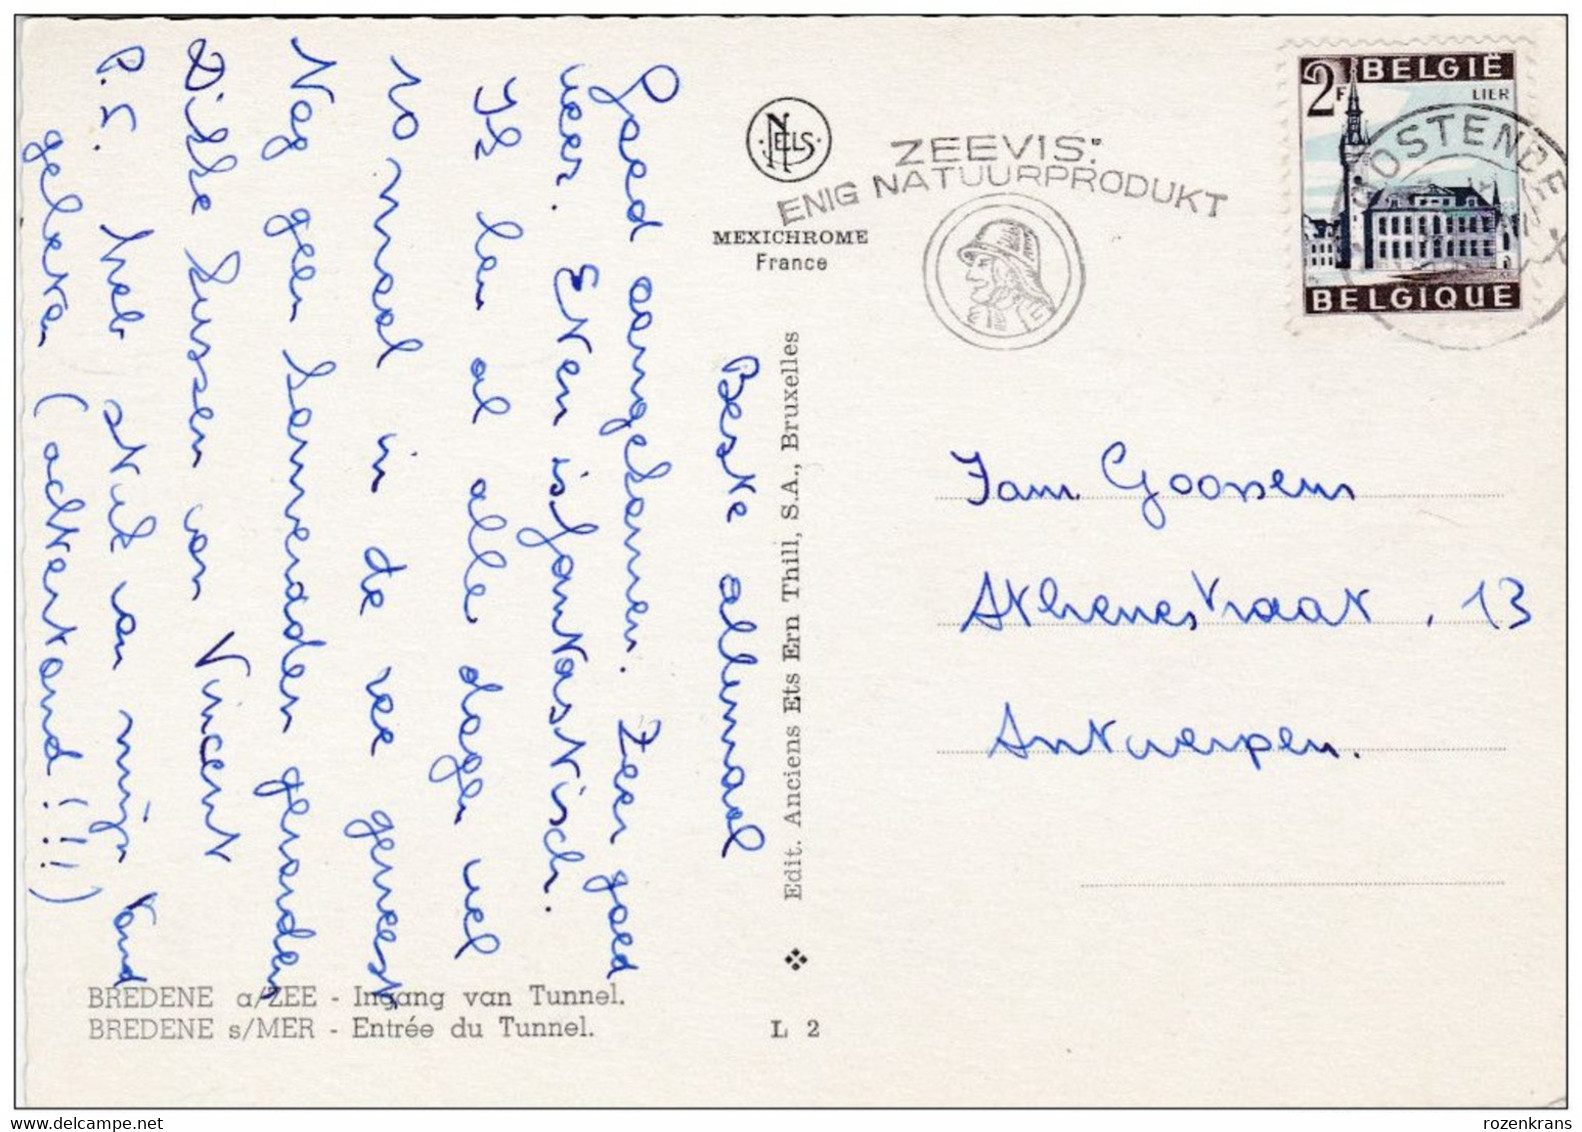 Beste allemaal
Goed aangekomen. Zeer goed
weer. Eten is fantastisch.
Ik ben al alle dagen wel
10 maal in de zee geweest
Nog geen hamerdden gevonden
Dikke kussen van Vincent
P.S. heb stuk van mijn tand
gebeten (achtertand!!!)
NELS
MEXICHROME
France
ZEEVIS:
ENIG NATUURPRODUKT
2F BELGIË
LIER
BELGIQUE
OOSTENDE
Edit. Anciens Ets Ern Thill, S.A., Bruxelles
Fam. Goossens
Athenestraat, 13
Antwerpen.
BREDENE a/ZEE - Ingang van Tunnel.
BREDENE s/MER - Entrée du Tunnel.
L 2
rozenkrans